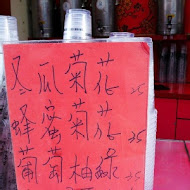 冬瓜菊花 25
蜂蜜菊花 25
葡萄柚綠